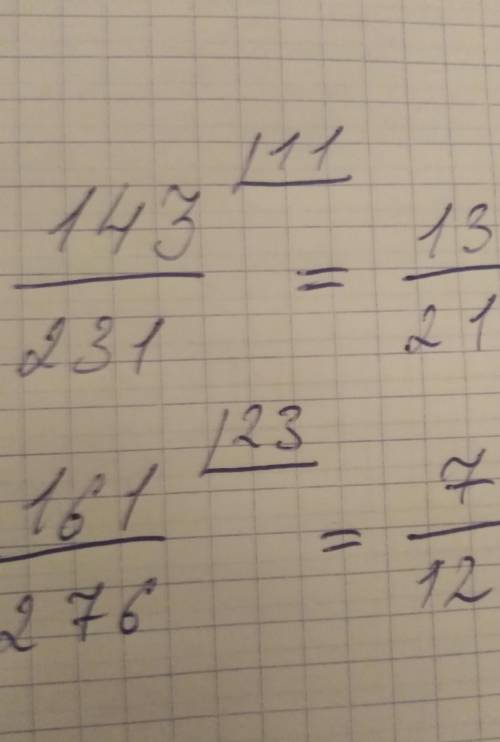 143/231 |11 = 13/21
161/276 |23 = 7/12